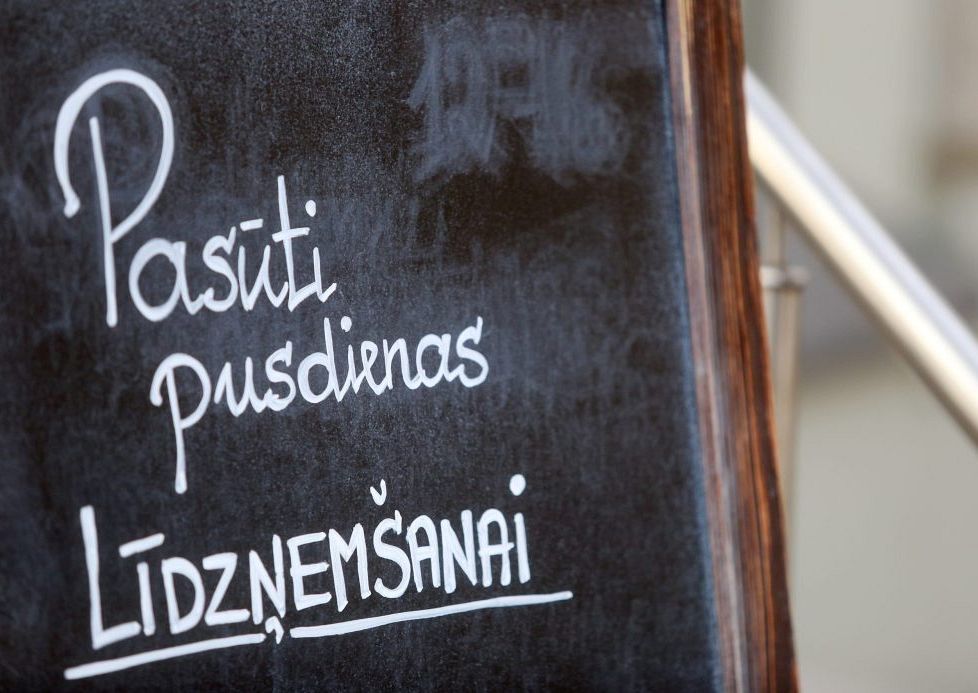 Pasūti
pusdienas
LĪDZŅEMŠANAi